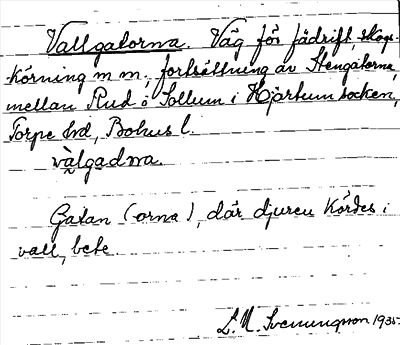 Vallgatorna. Väg för fädrift, skogs-
körning m m., fortsättning av Stengatorna,
mellan Rud o Sollum i Hjärtum socken,
Torpe hd, Bohus l.
vàlgadⱥna.
Gatan (orna), där djuren kördes i
vall, bete.
L. N. Svenungsson 1935.